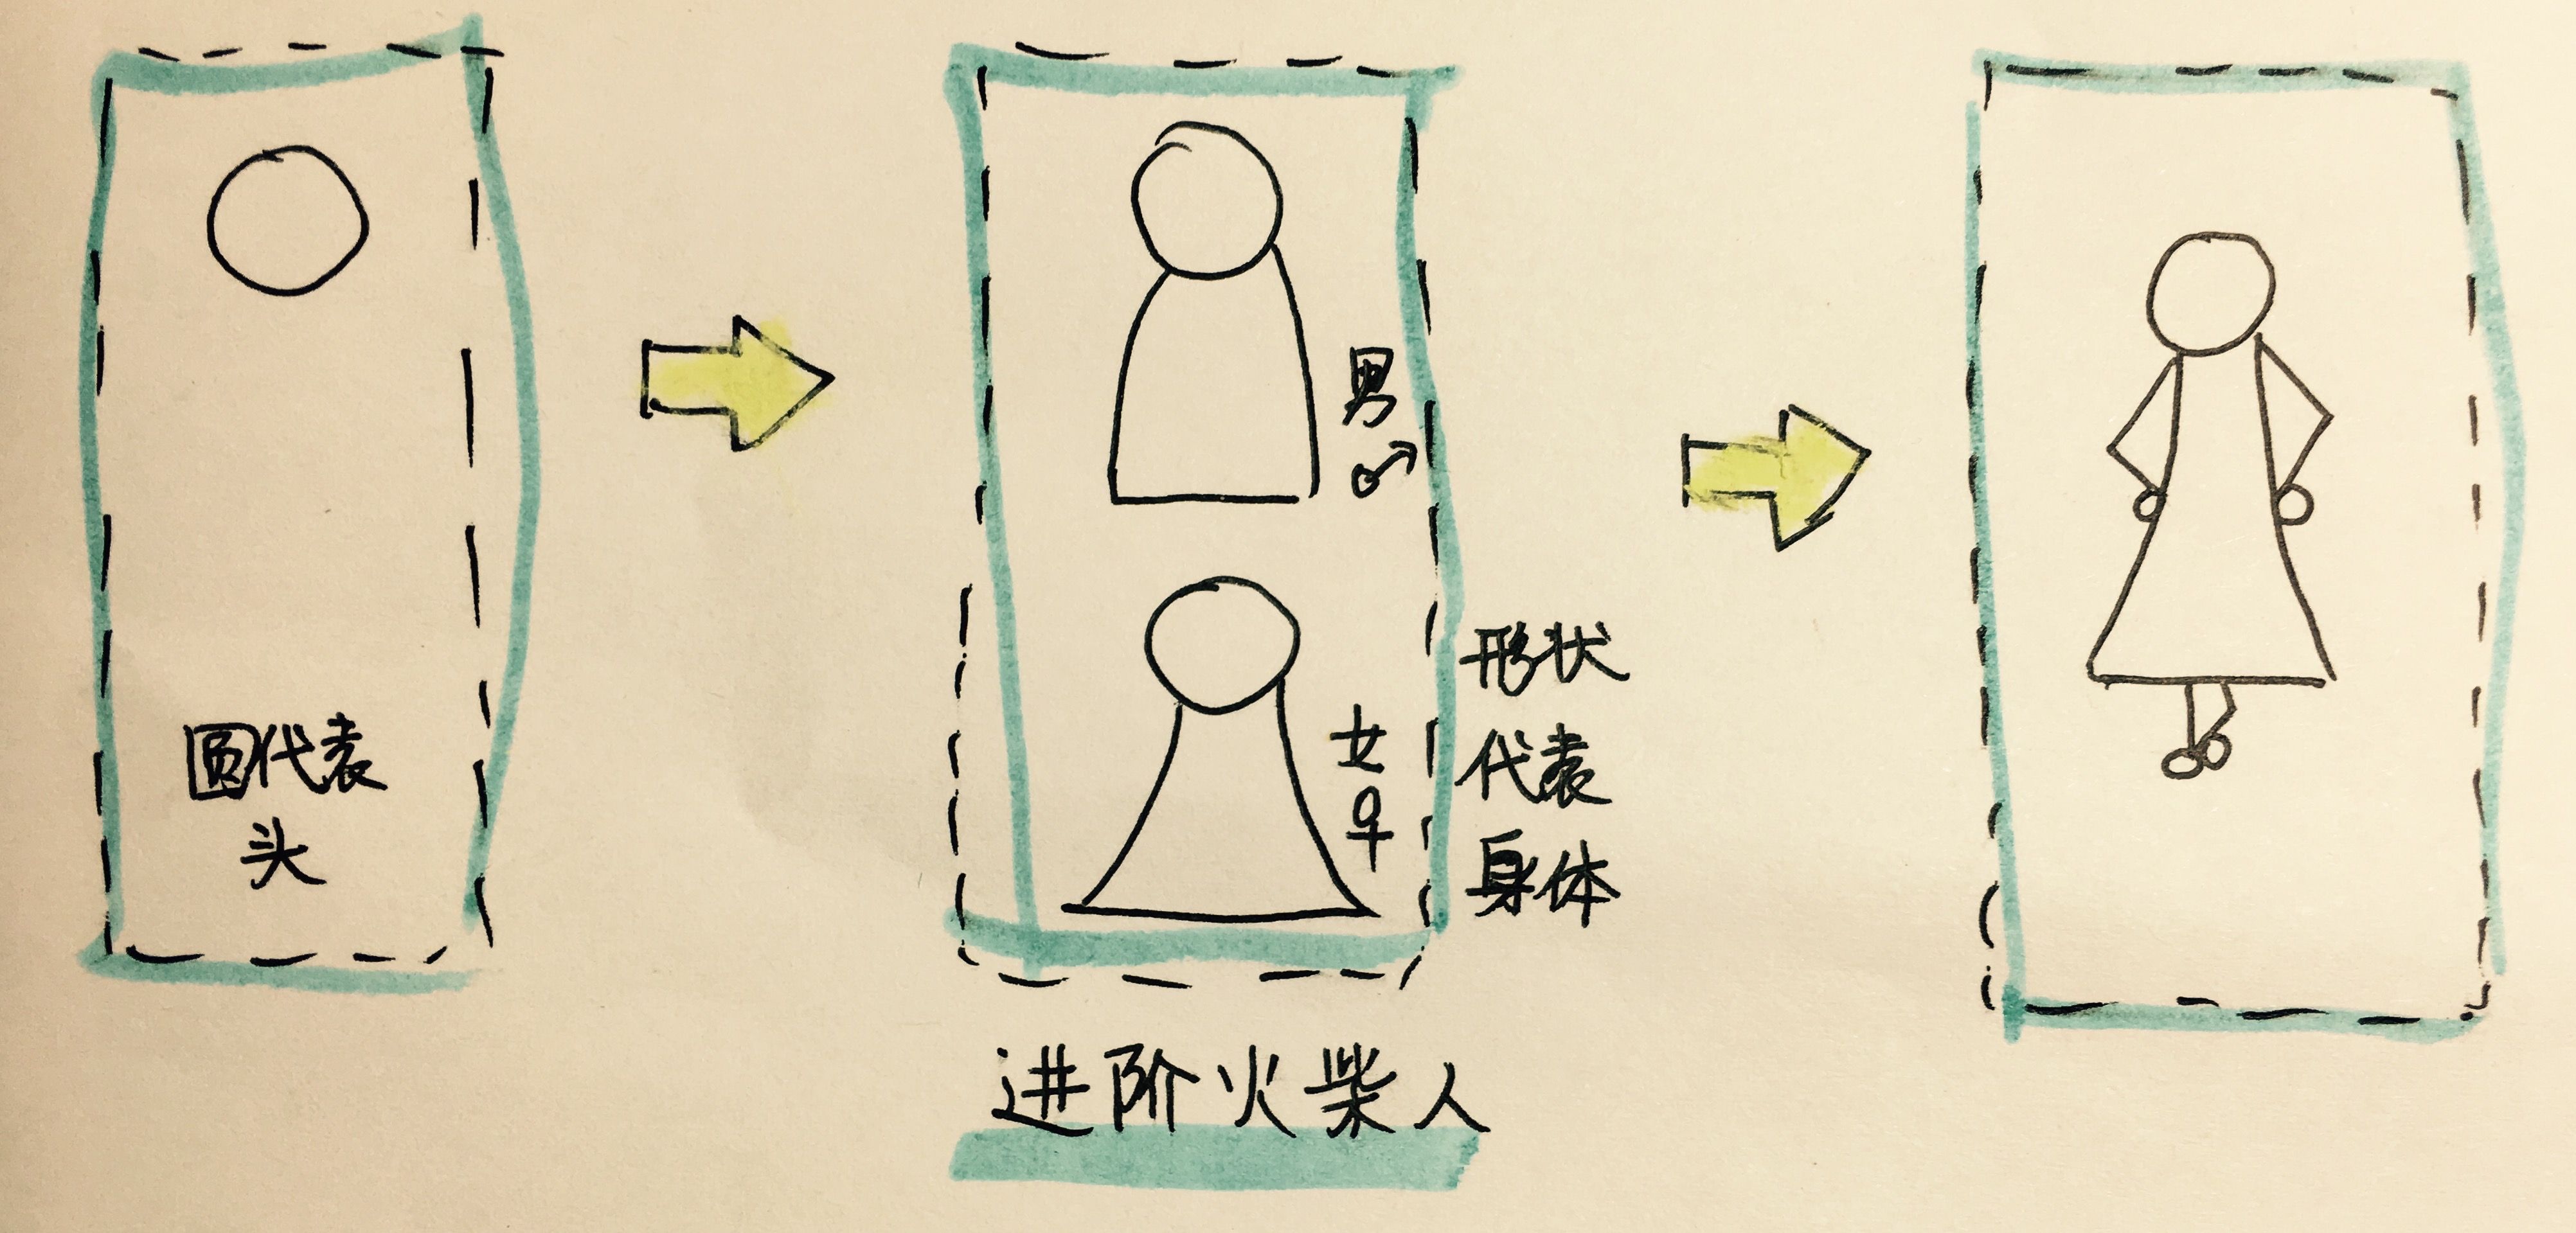 圆代表
头
男
♂
女
♀
形状
代表
身体
进阶火柴人